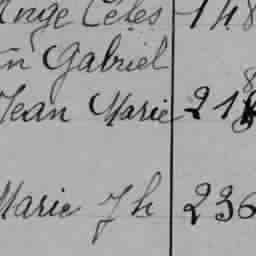 Ange Céles 148
in Gabriel
Jean Marie 218
Marie Jh 236